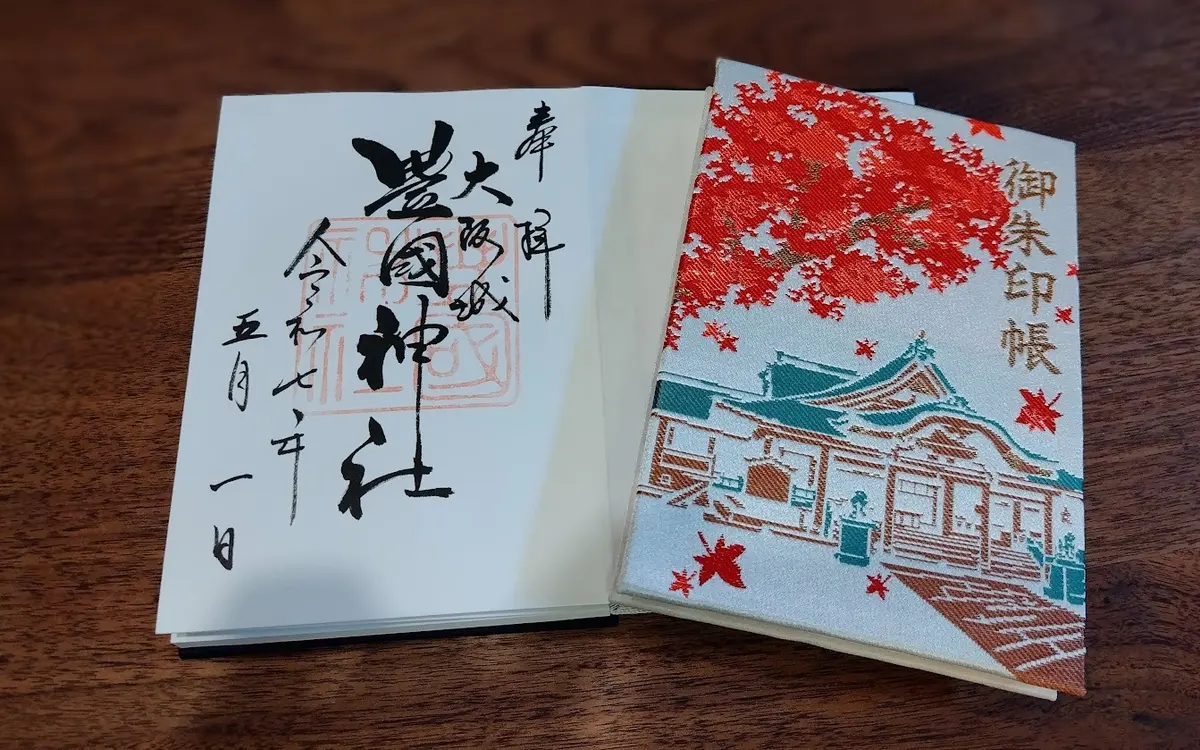 奉拝
大阪城
豊國神社
令和七年
五月一日
御朱印帳